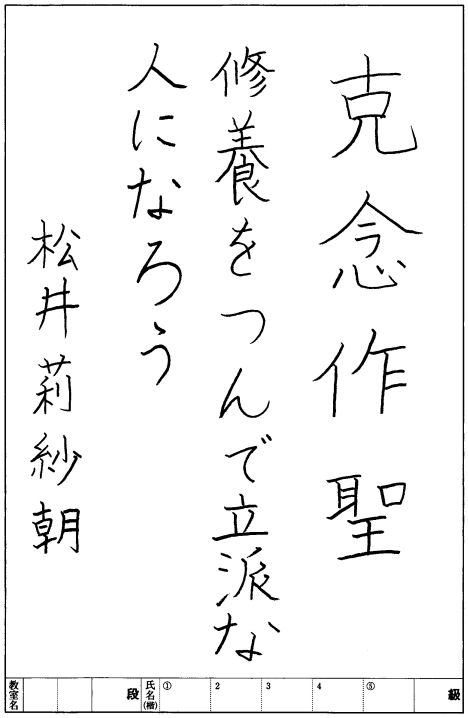 克念作聖
修養をつんで立派な
人になろう
松井莉紗朝
教室名 段 氏名(楷) ① 2 3 4 ⑤ 級